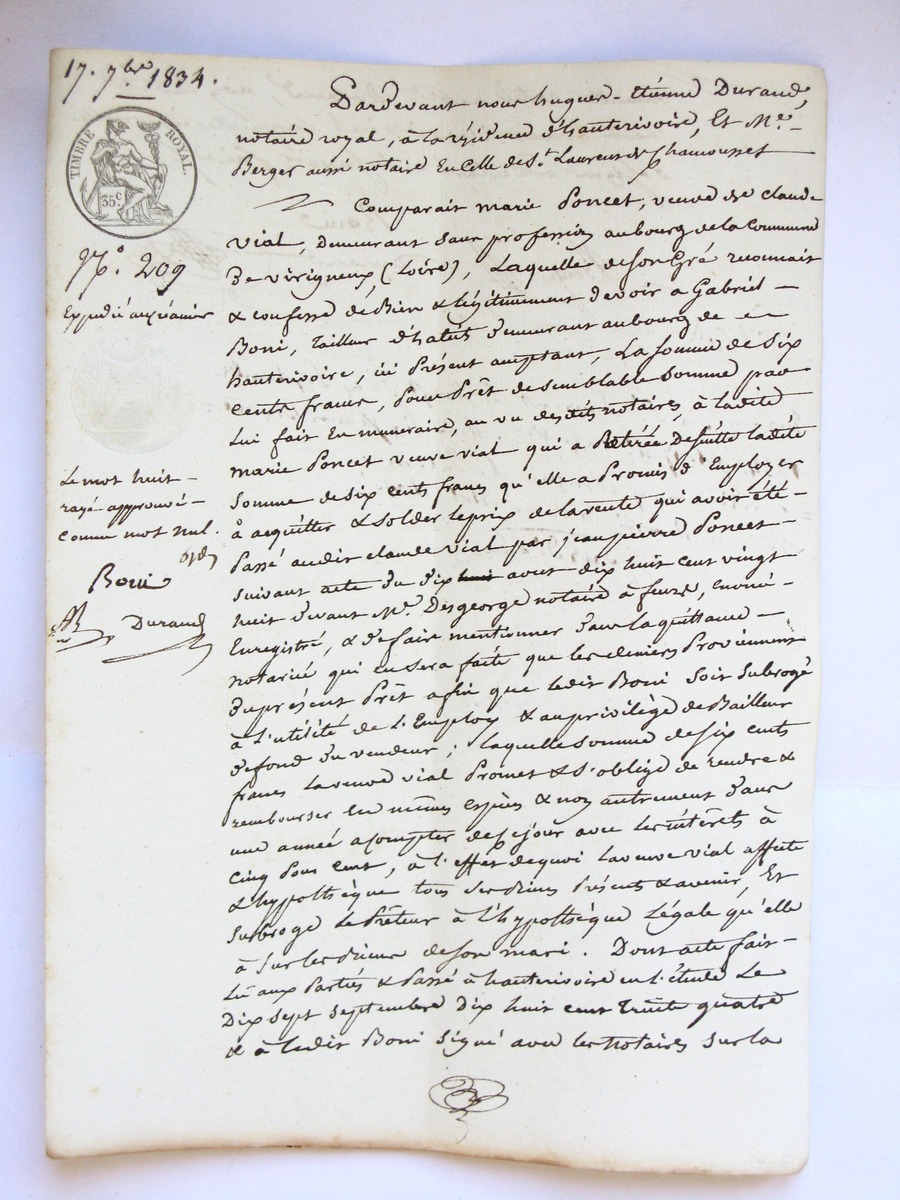 17. 7bre 1834.
TIMBRE ROYAL.
35c.
N°. 209
Expédié au créancier
Le mot huit
rayé approuvé
comme mot nul.
Boni
Durand
Pardevant nous hugues-Etienne Durand,
notaire royal, à la résidence d'hauterivoire, Et Me.
Berger aussi notaire En celle de St. Laurent de Chamousset
Comparait marie Poncet, veuve de claude
vial, demeurant sans profession au bourg de la Commune
De virigneux, (Loire), Laquelle de son Gré reconnait
& confesse de Bien & légitimement devoir à Gabriel
Boni, tailleur d'habits demeurant au bourg de
hauterivoire, ici Présent acceptant, La somme de six
cents francs, Pour Prêt de semblable somme par
Lui fait En numeraire, au vu desdits notaires, à ladite
marie Poncet veuve vial qui a Retirée De suitte ladite
somme de six cents francs qu'elle a Promis d'Employer
à acquitter & solder le prix de la vente qui avoir été
Passé audit claude vial par jean pierre Poncet
suivant acte du dix huit aout dix huit cent vingt
huit devant Me. Desgeorge notaire à feurs,
Enregistré, & de faire mentionner dans la quittance
notarié qui en sera faite que les deniers Proviennent
Du présent Prêt afin que ledit Boni soit subrogé
à l'utilité de l'Employ & au privilège de Bailleur
de fond du vendeur ; laquelle somme de six cents
francs la veuve vial Promet & s'oblige de rendre &
rembourser en mêmes espèces & non autrement dans
une année à compter de ce jour avec les intérêts à
Cinq pour cent, à l'effet de quoi la veuve vial affecte
& hypothèque tous ses biens Présents & avenir, Et
subroge le Prêteur à l'hypothèque Légale qu'elle
à sur les biens de son mari. Dont acte fait
Lu aux Partiés & Passé à hauterivoire en l'étude Le
Dix sept septembre Dix huit cent trente quatre
& à ledit Boni signé avec les notaires sur la